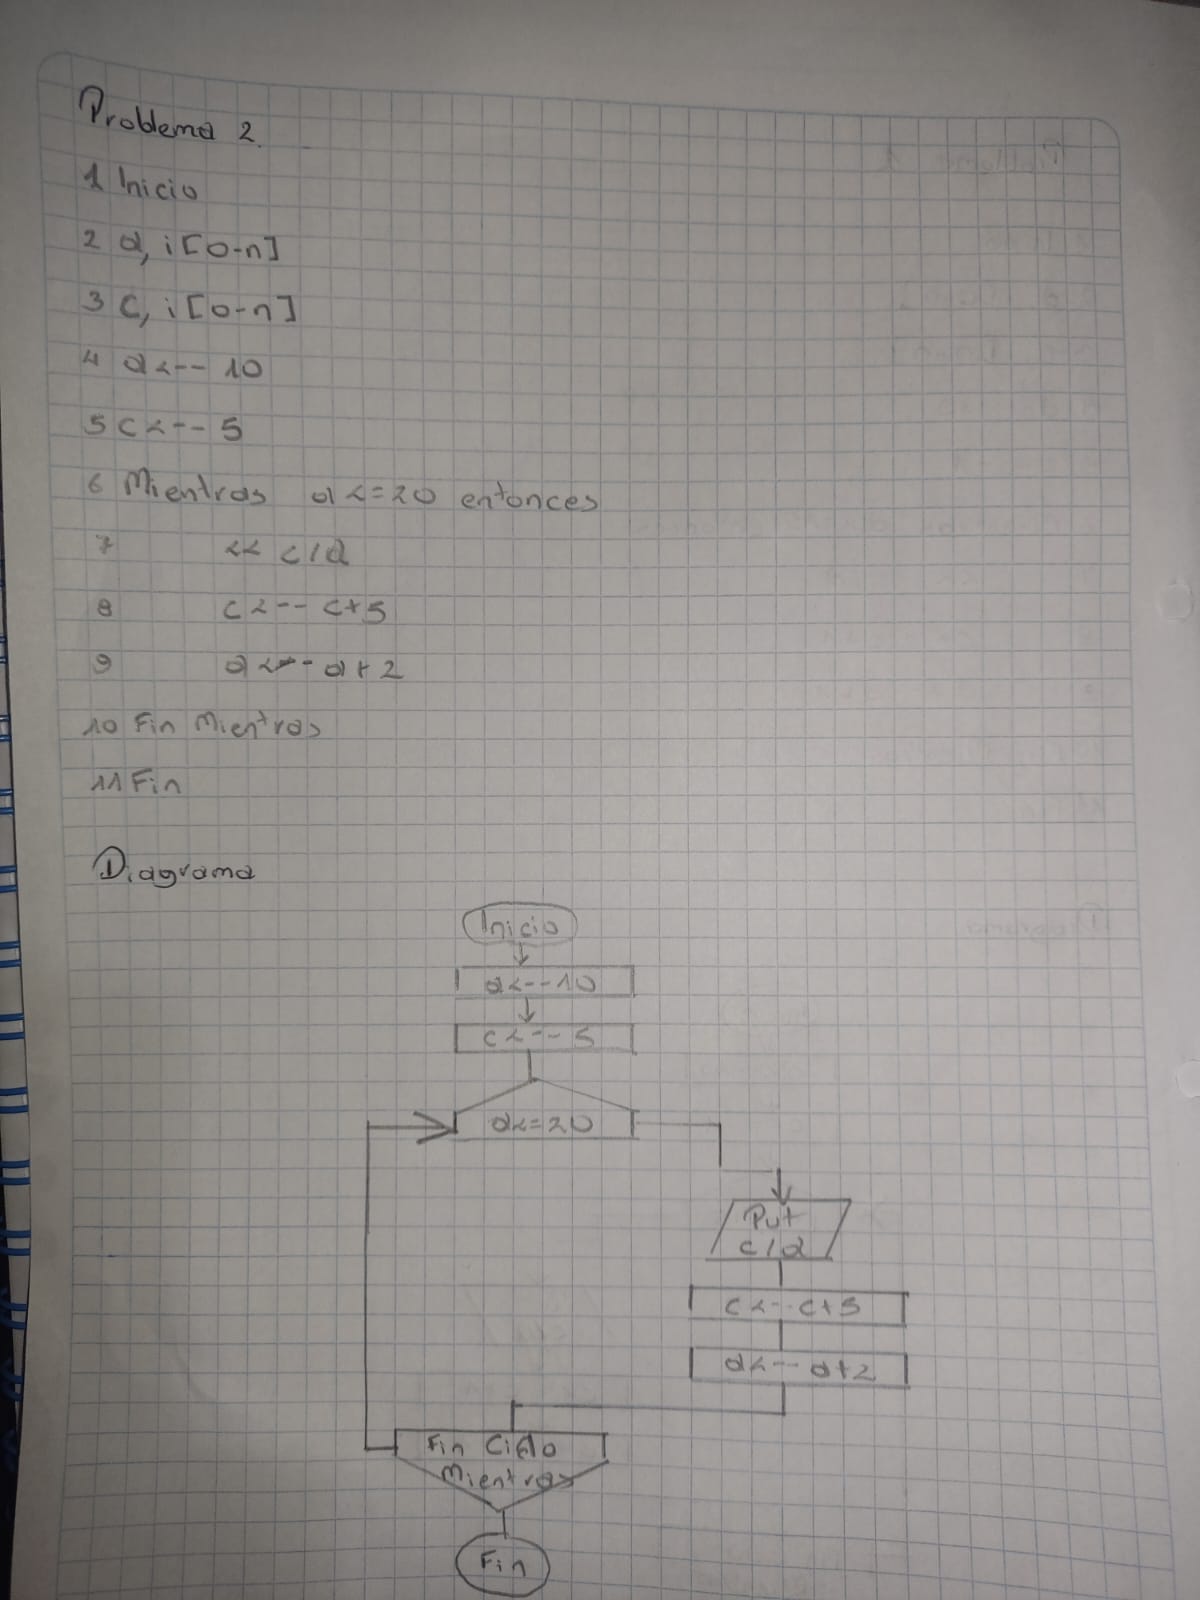 Problema 2.
1 Inicio
2 a, i [0-n]
3 C, i [0-n]
4 a <-- 10
5 C <-- 5
6 Mientras a <= 20 entonces
7 << c/a
8 c <-- c+5
9 a <-- a+2
10 Fin Mientras
11 Fin
Diagrama
Inicio
a <-- 10
c <-- 5
a <= 20
Put
c/a
c <-- c+5
a <-- a+2
Fin Ciclo
Mientras
Fin